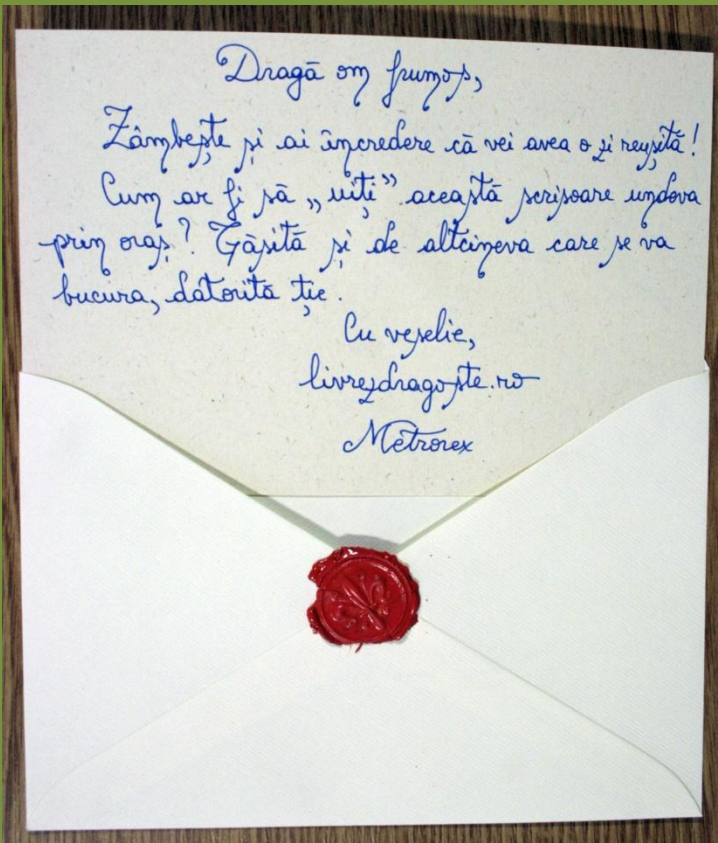 Dragă om frumos,
Zâmbește și ai încredere că vei avea o zi reușită!
Cum ar fi să „uiți” această scrisoare undeva
prin oraș? Găsită și de altcineva care se va
bucura, datorită ție.
Cu veselie,
livrezdragoste.ro
Metrorex